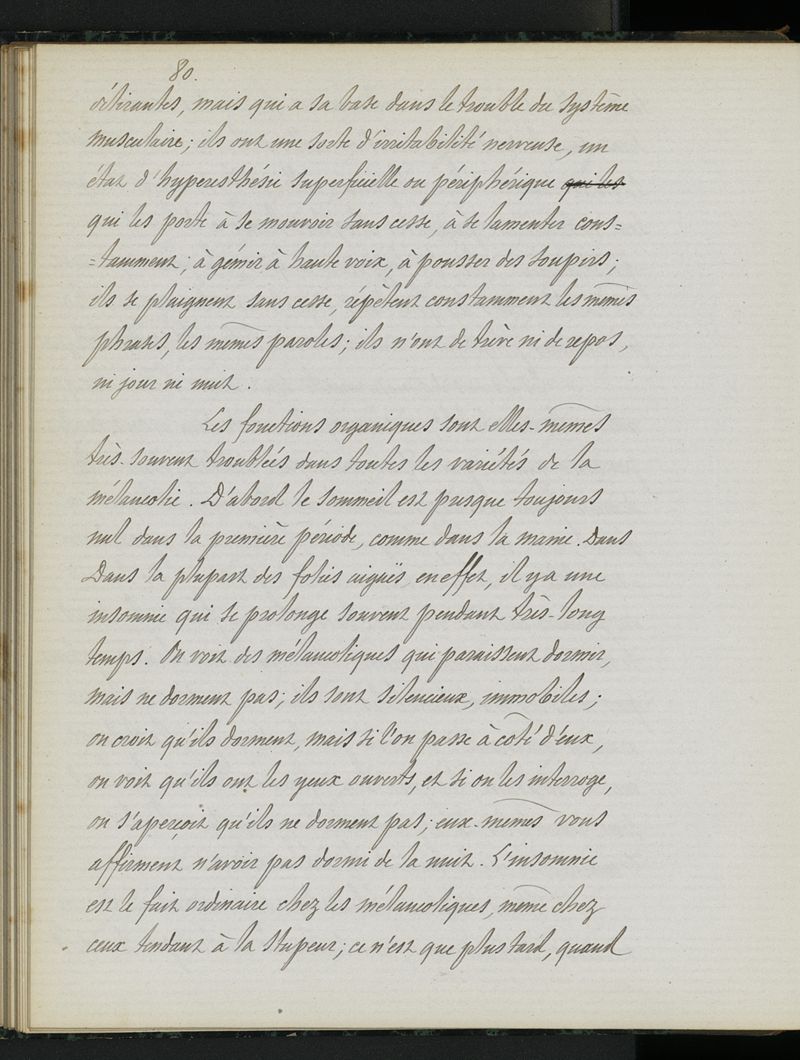 80.
délirantes, mais qui a sa base dans le trouble du système
musculaire; ils ont une sorte d'irritabilité nerveuse, un
état d'hyperesthésie superficielle ou périphérique qui les
qui les porte à se mouvoir sans cesse, à se lamenter cons=
=tamment; à gémir à haute voix, à pousser des soupirs;
ils se plaignent sans cesse, répètent constamment les mêmes
phrases, les mêmes paroles; ils n'ont de trève ni de repos,
ni jour ni nuit.
Les fonctions organiques sont elles-mêmes
très-souvent troublées dans toutes les variétés de la
mélancolie. D'abord le sommeil est presque toujours
nul dans la première période, comme dans la manie. Dans
Dans la plupart des folies aiguës, en effet, il y a une
insomnie qui se prolonge souvent pendant très-long
temps. On voit des mélancoliques qui paraissent dormir,
mais ne dorment pas; ils sont silencieux, immobiles;
on croit qu'ils dorment, mais si l'on passe à côté d'eux,
on voit qu'ils ont les yeux ouverts, et si on les interroge,
on s'aperçoit qu'ils ne dorment pas; eux-mêmes vous
affirment n'avoir pas dormi de la nuit. L'insomnie
est le fait ordinaire chez les mélancoliques, même chez
ceux tendant à la stupeur; ce n'est que plus tard, quand